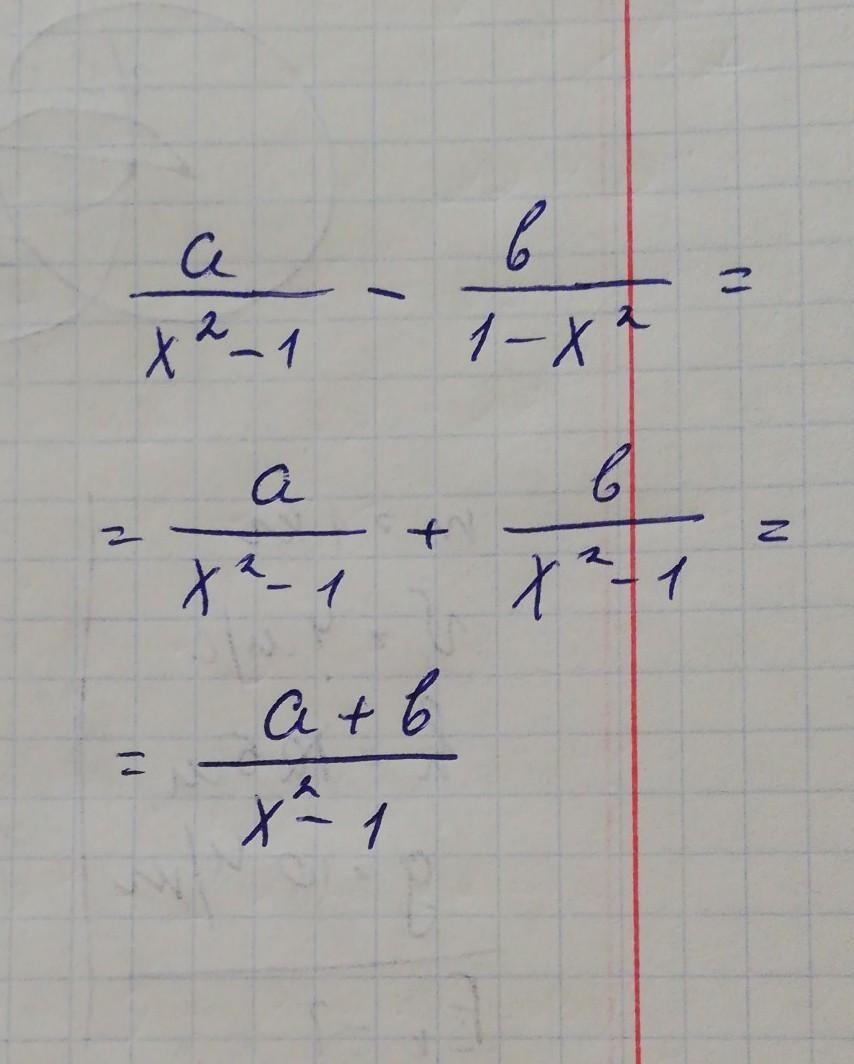 a/(x²-1) - b/(1-x²) =
= a/(x²-1) + b/(x²-1) =
= (a+b)/(x²-1)